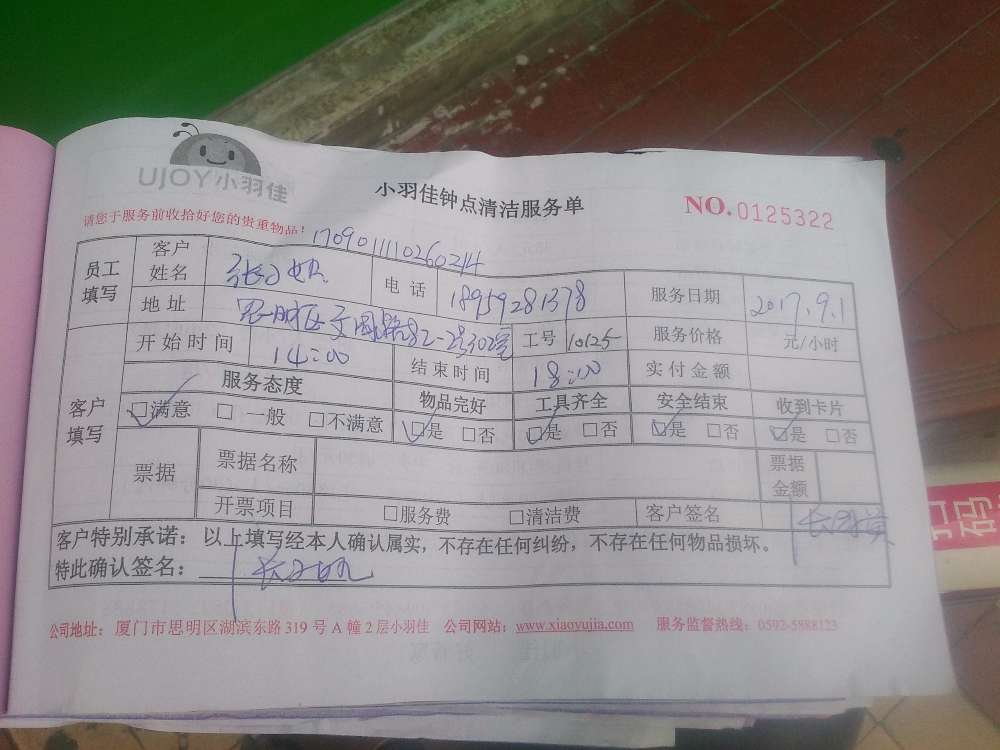 UJOY小羽佳
小羽佳钟点清洁服务单
NO.0125322
请您于服务前收拾好您的贵重物品!
1709011110260214
员工填写
客户姓名
电话 18959281378
服务日期 2017.9.1
地址 思明区文园路82-2号302室
工号 10125
服务价格 元/小时
客户填写
开始时间 14:00
结束时间 18:00
实付金额
服务态度 物品完好 工具齐全 安全结束 收到卡片
☑满意 □一般 □不满意 ☑是 □否 ☑是 □否 ☑是 □否 ☑是 □否
票据 票据名称 票据金额
开票项目 □服务费 □清洁费 客户签名
客户特别承诺：以上填写经本人确认属实，不存在任何纠纷，不存在任何物品损坏。
特此确认签名：
公司地址：厦门市思明区湖滨东路319号A幢2层小羽佳 公司网站：www.xiaoyujia.com 服务监督热线：0592-5888123
码